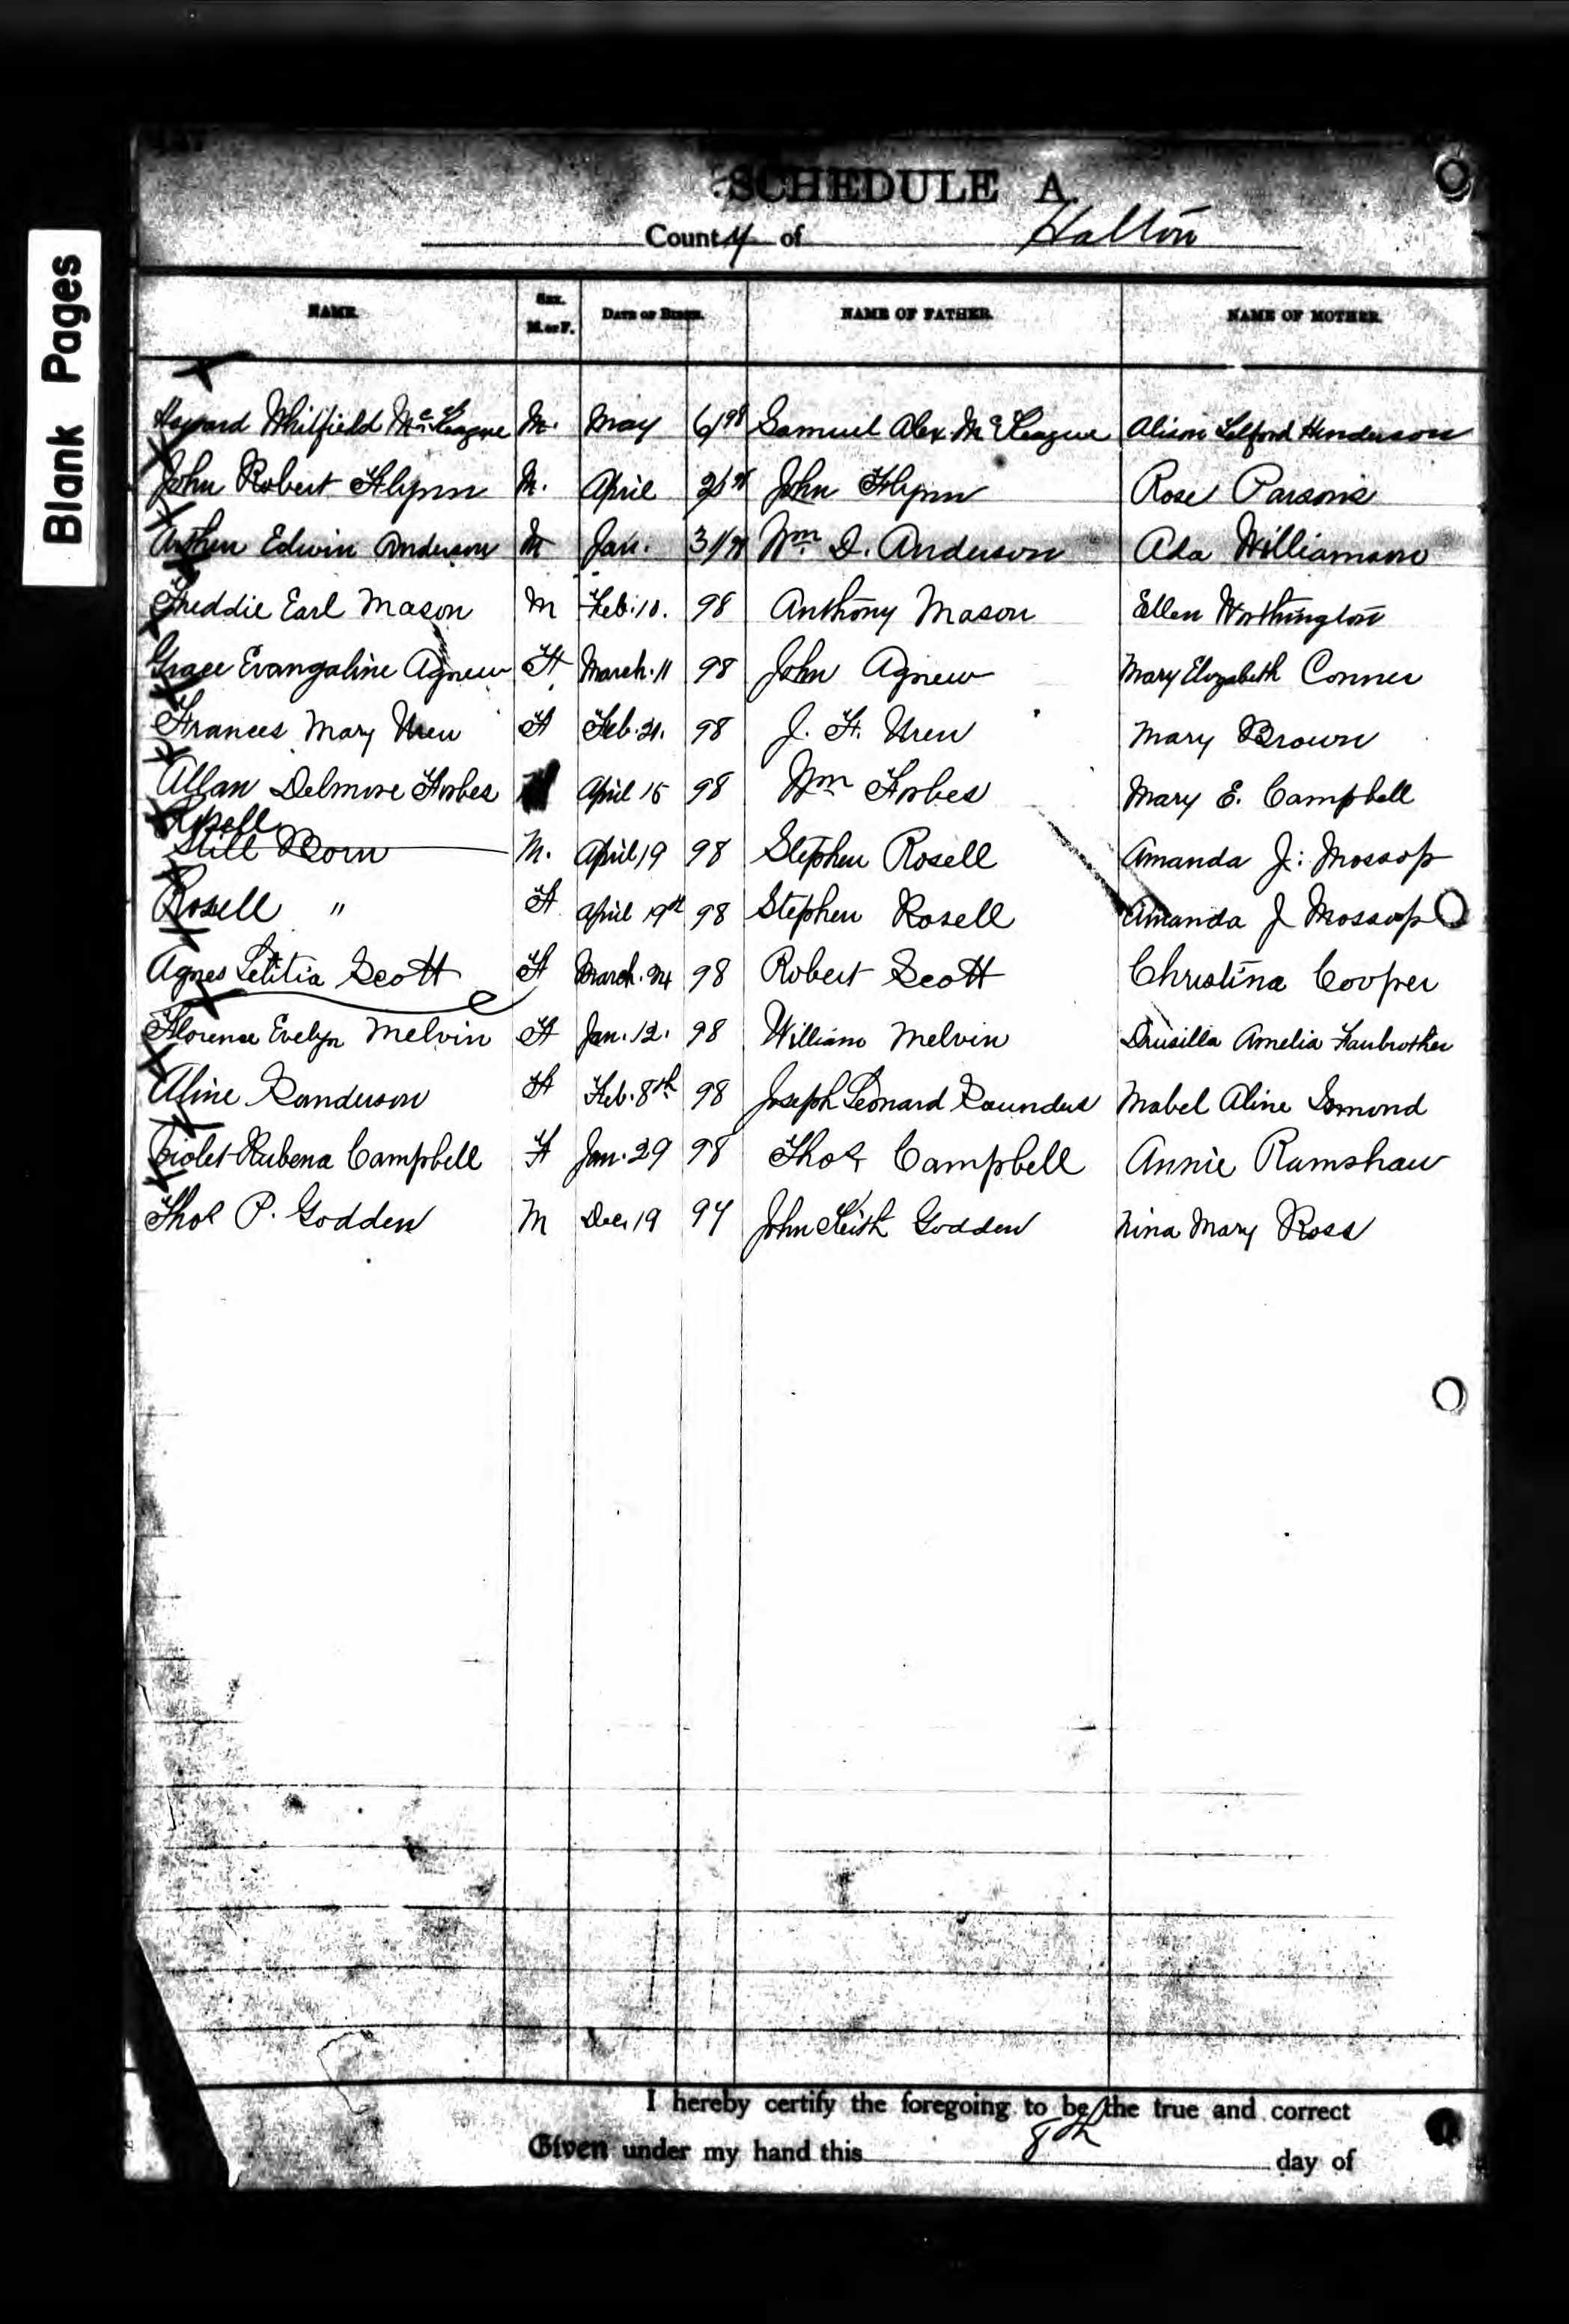 Blank Pages
SCHEDULE A.
County of Halton
NAME. Sex. M. or F. DATE OF BIRTH. NAME OF FATHER. NAME OF MOTHER.
Whitfield M. May 6/98 Samuel Alex. Henderson
John Robert Flynn M. April John Flynn Rose Parsons
Edwin Anderson M Jan. 31/98 Wm D. Anderson Ada Williamson
Freddie Earl Mason M Feb. 10. 98 Anthony Mason Ellen Worthington
Grace Evangaline Agnew F March. 11 98 John Agnew Mary Elizabeth Conner
Frances Mary Uren F Feb. 21. 98 J. F. Uren Mary Brown
Allan Delmore Forbes April 15 98 Wm Forbes Mary E. Campbell
Rosell
Still Born M. April 19 98 Stephen Rosell Amanda J. Mossop
Rosell " F April 19th 98 Stephen Rosell Amanda J Mossop
Agnes Letitia Scott F March. 24 98 Robert Scott Christina Cooper
Florence Evelyn Melvin F Jan. 12. 98 William Melvin Drusilla Amelia
Aline F Feb. 8th 98 Joseph Leonard Mabel Aline
Violet Rubena Campbell F Jan. 29 98 Thos Campbell Annie Ramshaw
Thos P. Godden M Dec 19 97 John Keith Godden Nina Mary Ross
I hereby certify the foregoing to be the true and correct
Given under my hand this 8th day of